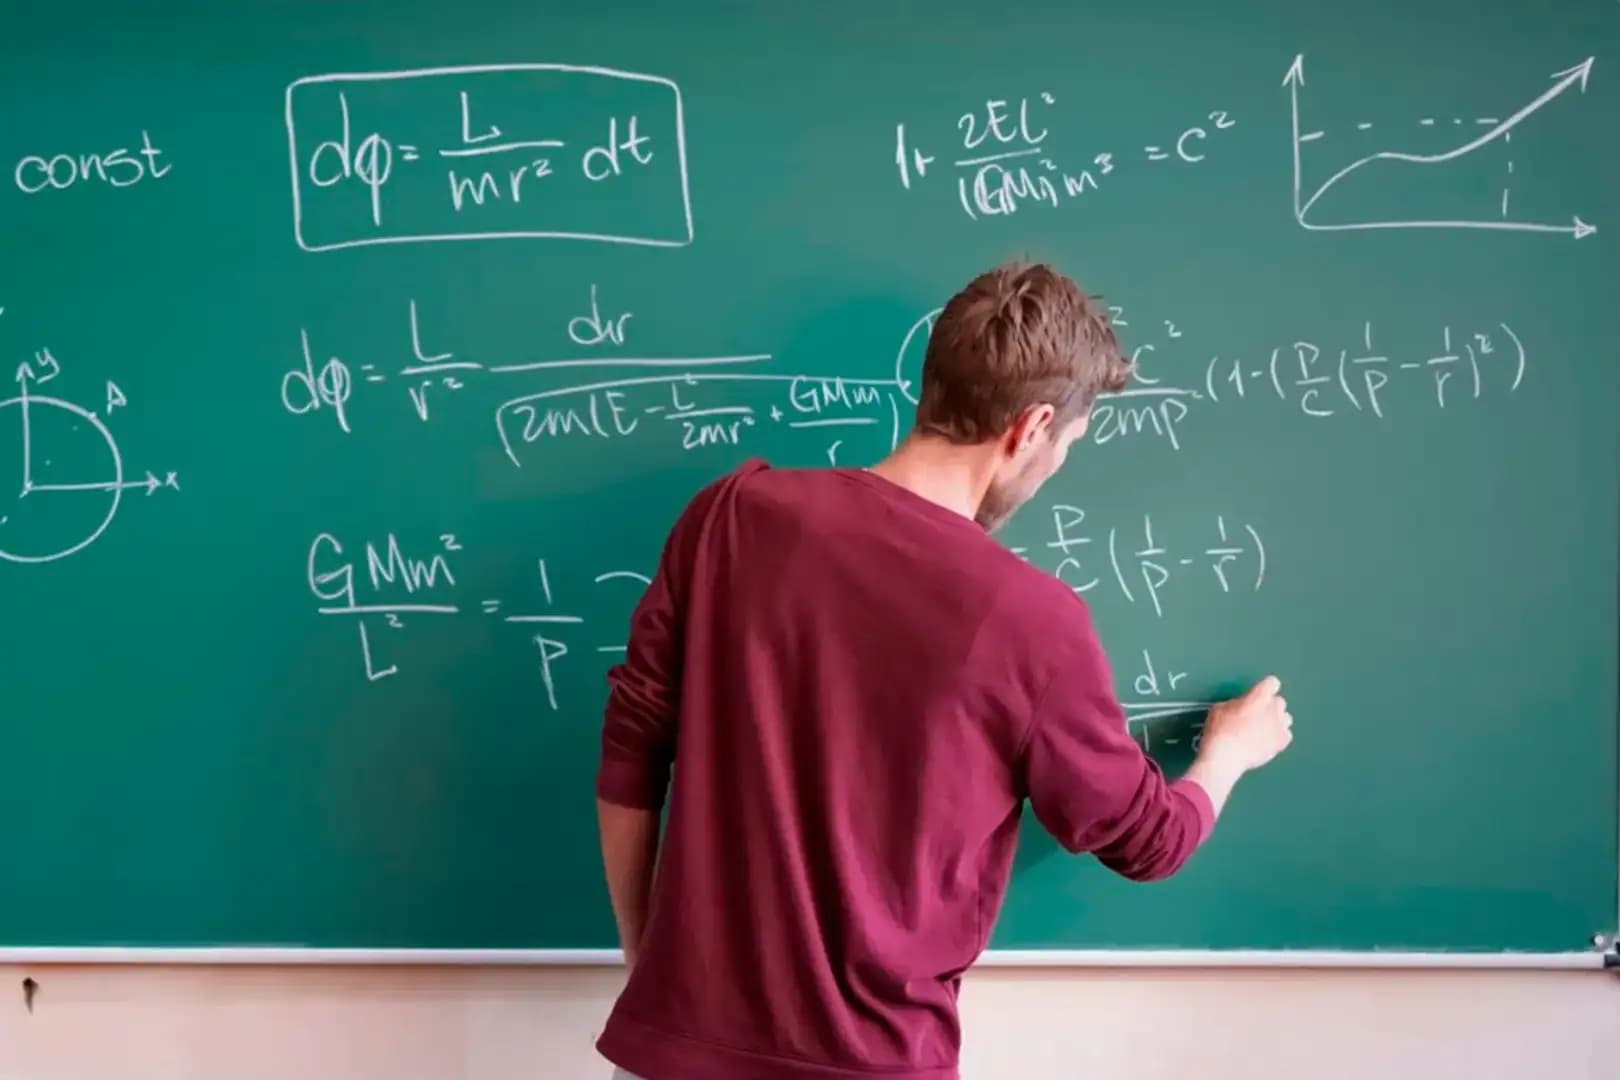 const
dφ = L/mr² dt
1+ 2EL²/(GM)²m³ = C²
y
A
x
dφ = L/r² dr/√2m(E - L²/2mr² + GMm/r)
² C²/2mp² (1-(P/C(1/P - 1/r)²)
GMm²/L² = 1/P
= P/C (1/P - 1/r)
dr/√1 -